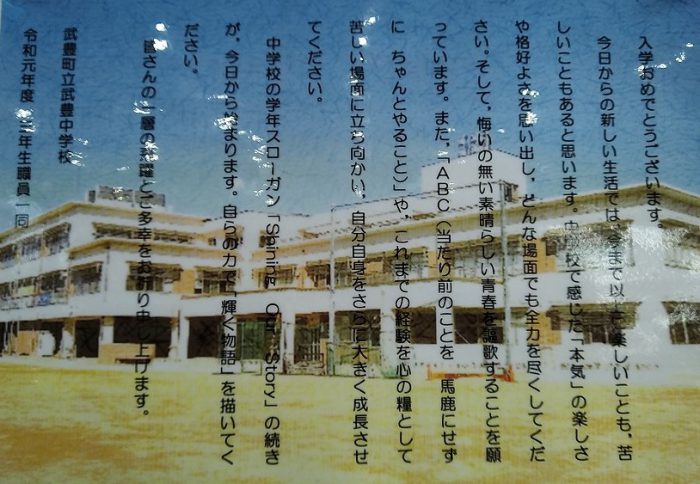 入学おめでとうございます。
今日からの新しい生活では、今まで以上に楽しいことも、苦
しいこともあると思います。中学校で感じた「本気」の楽しさ
や格好よさを思い出し、どんな場面でも全力を尽くしてくだ
さい。そして、悔いの無い素晴らしい青春を謳歌することを願
っています。また、「ABC（当たり前のことを 馬鹿にせず
に ちゃんとやること）」や、これまでの経験を心の糧として
苦しい場面に立ち向かい、自分自身をさらに大きく成長させ
てください。
中学校の学年スローガン「Shining Our Story」の続き
が、今日から始まります。自らの力で「輝く物語」を描いてく
ださい。
皆さんの一層の活躍とご多幸をお祈り申し上げます。
武豊町立武豊中学校
令和元年度 三年生職員一同